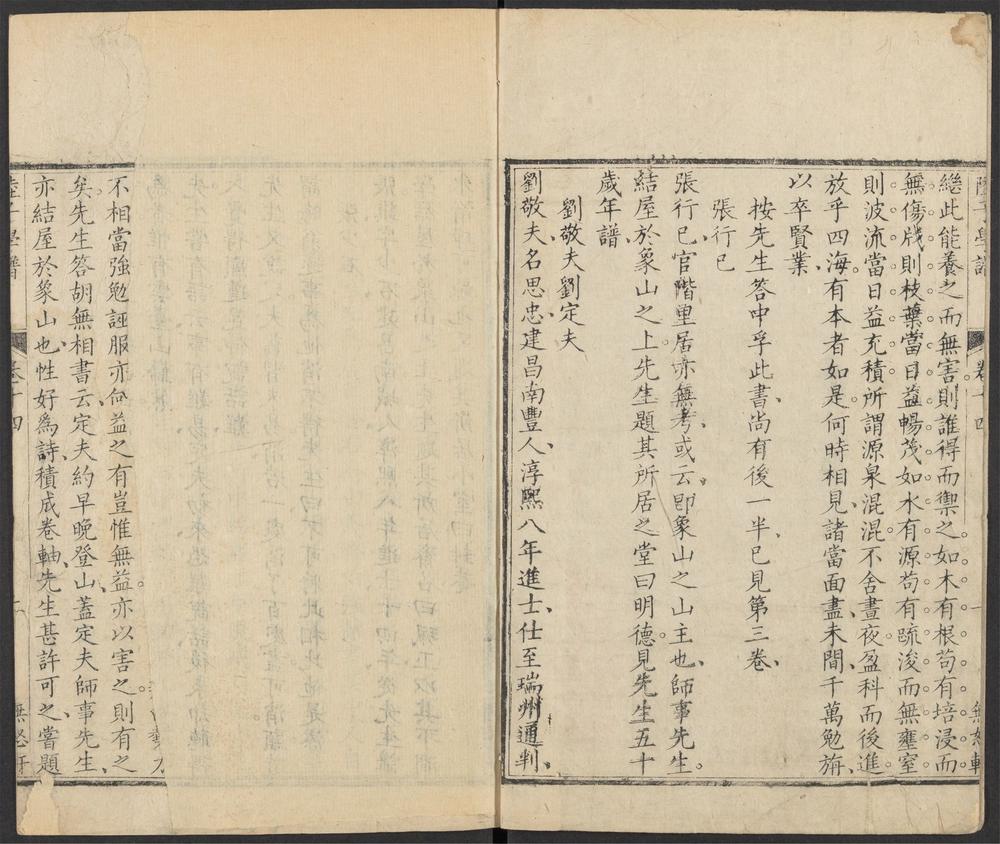 陸子學譜 卷十四 一 無怒軒
繼此能養之而無害則誰得而禦之如木有根苟有培浸而
無傷戕則枝葉當日益暢茂如水有源苟有疏浚而無壅窒
則波流當日益充積所謂源泉混混不舍晝夜盈科而後進
放乎四海有本者如是何時相見諸當面盡未間千萬勉旃
以卒賢業
按先生答中孚此書尚有後一半已見第三卷
張行已
張行已官階里居亦無考或云卽象山之山主也師事先生
結屋於象山之上先生題其所居之堂曰明德見先生五十
歲年譜
劉敬夫劉定夫
劉敬夫名思忠建昌南豐人淳熙八年進士仕至瑞州通判
不相當強勉誣服亦何益之有豈惟無益亦以害之則有之
矣先生答胡無相書云定夫約早晚登山蓋定夫師事先生
亦結屋於象山也性好爲詩積成卷軸先生甚許可之嘗題
陸子學譜 卷十四 無怒軒